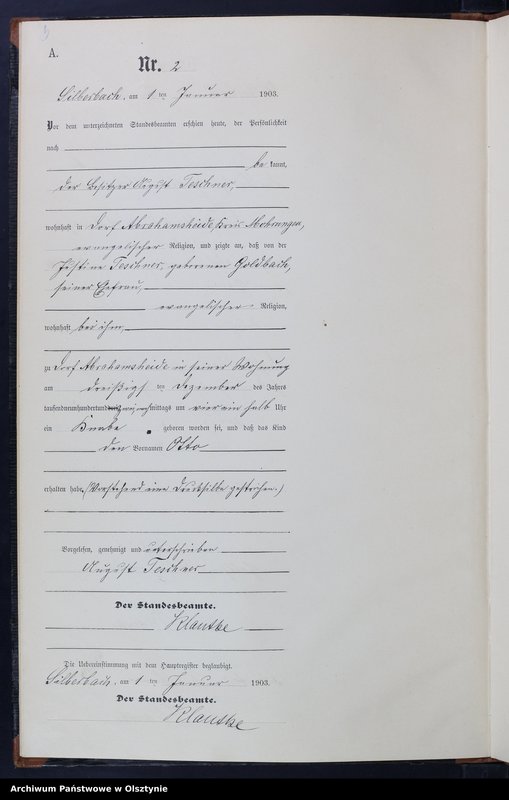 A.
Nr. 2
Silberbach, am 1 ten Januar 1903.
Vor dem unterzeichneten Standesbeamten erschien heute, der Persönlichkeit
nach
be kannt,
der Besitzer August Teschner,
wohnhaft in Dorf Abrahamsheide, Kreis Mohrungen,
evangelischer Religion, und zeigte an, daß von der
Justine Teschner, geborenen Goldbach,
seiner Ehefrau,
evangelischer Religion,
wohnhaft bei ihm,
zu Dorf Abrahamsheide in seiner Wohnung
am dreißigs ten Dezember des Jahres
tausendneunhundertund zwei nachmittags um vier ein halb Uhr
ein Knabe geboren worden sei, und daß das Kind
den Vornamen Otto
erhalten habe. (Vorstehend eine Drucksilbe gestrichen.)
Vorgelesen, genehmigt und unterschrieben
August Teschner
Der Standesbeamte.
Klautke
Die Uebereinstimmung mit dem Hauptregister beglaubigt.
Silberbach, am 1 ten Januar 1903.
Der Standesbeamte.
Klautke
Archiwum Państwowe w Olsztynie